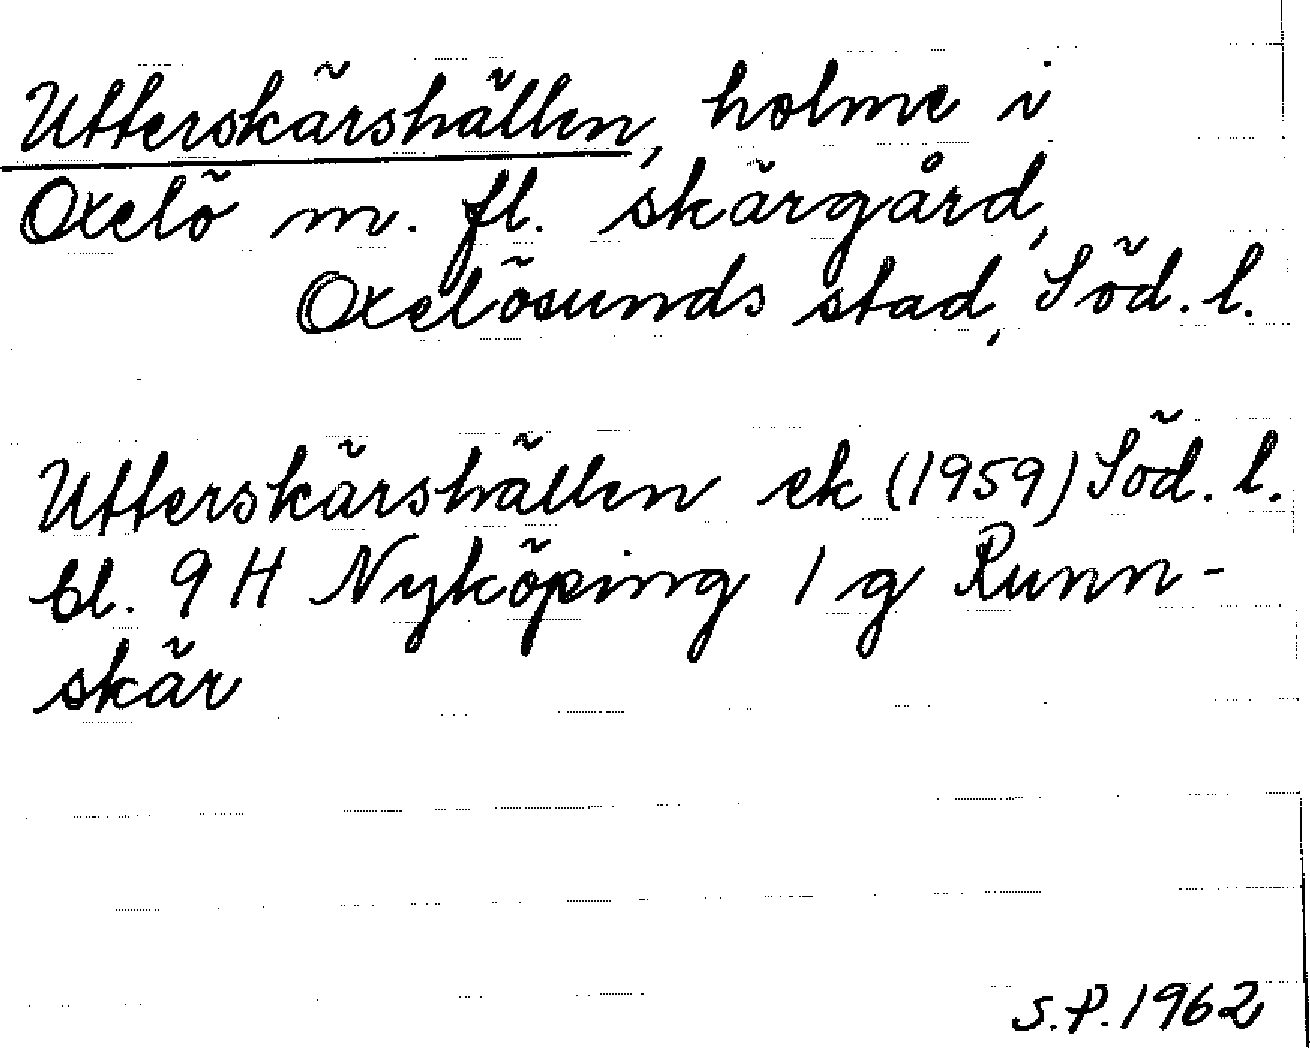 Utterskärshällen, holme i
Oxelö m. fl. skärgård,
Oxelösunds stad, Söd. l.
Utterskärshällen ek (1959) Söd. l.
bl. 9 H Nyköping 1 g Runn-
skär
S.P. 1962